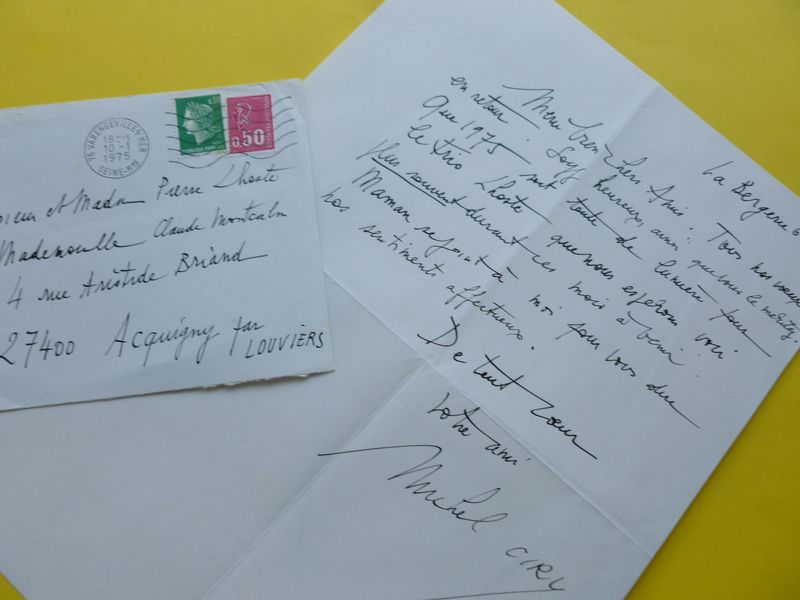 76 VARENGEVILLE S/MER
18H15
10-1
1975
SEINE-MME
0,50
Monsieur et Madame Pierre Lhoste
Mademoiselle Claude Montcalm
4 rue Aristide Briand
27400 Acquigny par
LOUVIERS
La Bergerie 6
Merci bien Chers Amis. Tous nos voeux
en retour. Soyez heureux, ainsi que vous le méritez.
Que 1975 soit toute de lumière pour
le trio Lhoste que nous espérons voir
plus souvent durant ces mois à venir.
Maman se joint à moi pour vous dire
nos sentiments affectueux.
De tout coeur
votre ami
Michel CIRY